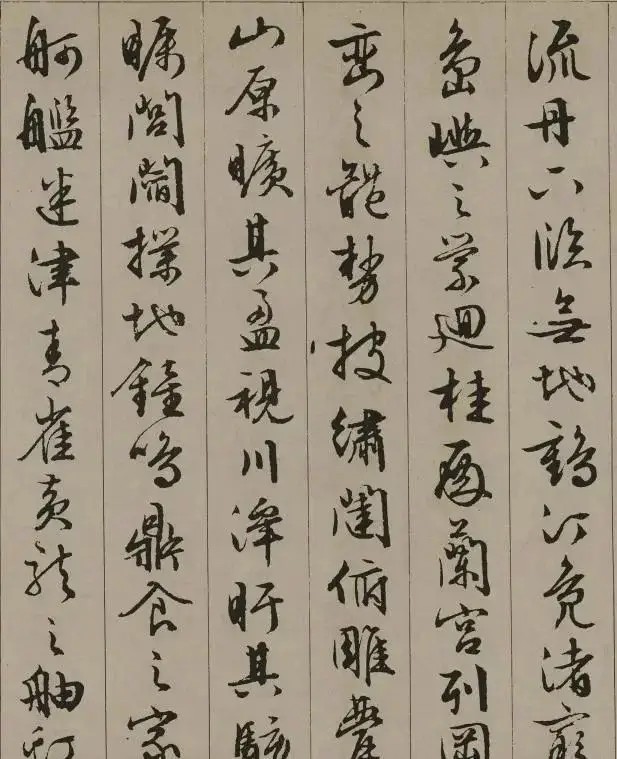 流丹下臨無地鶴汀鳧渚窮
島嶼之縈廻桂殿蘭宮列岡
巒之體勢披繡闥俯雕甍
山原曠其盈視川澤盱其駭
矚閭閻撲地鐘鳴鼎食之家
舸艦迷津青雀黃龍之舳虹